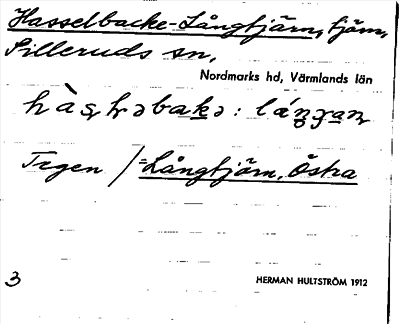 Hasselbacke-Långtjärn, tjärn,
Silleruds sn,
Nordmarks hd, Värmlands län
Tvgen /=Långtjärn, Östra
3
HERMAN HULTSTRÖM 1912